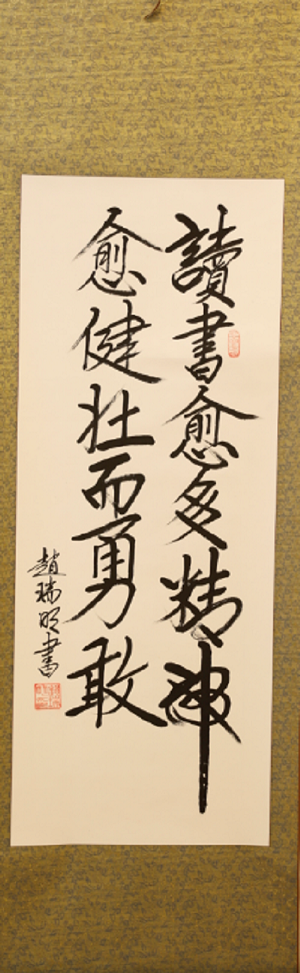 讀書愈多精神
愈健壯而勇敢
趙瑞明書